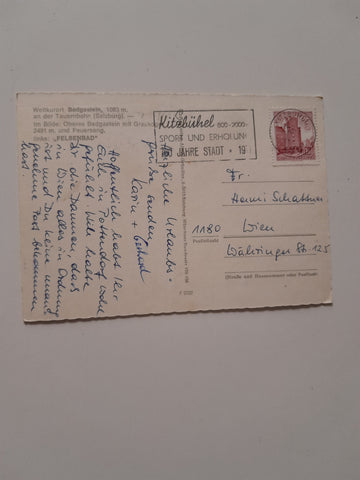 Weltkurort Badgastein, 1083 m,
an der Tauernbahn (Salzburg). —
Im Bilde: Oberes Badgastein mit Graukogel,
2491 m, und Feuersang,
links: „FELSENBAD"
Kitzbühel 800-2000
SPORT UND ERHOLUNG
JAHRE STADT 19
Herzliche Urlaubs-
grüsse senden
Karin +
Hoffentlich habt Ihr
Euch in Pottendorf wohl
gefühlt. Wir halten
Dir die Daumen, dass
in Wien alles in Ordnung
ist und Du keine unange-
nehme Post bekommen
hast.
Fr.
Henni Schattner
1180 Wien
Postleitzahl
Währinger Str. 125
(Straße und Hausnummer oder Postfach)